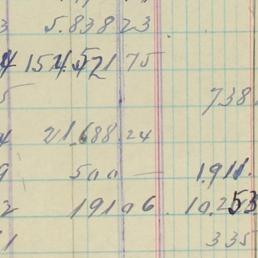 3 5.838 23
4 154.521 75
5 738
4 21.688.24
9 500 — 1.911.
2 191 06 10.2 53
1 335